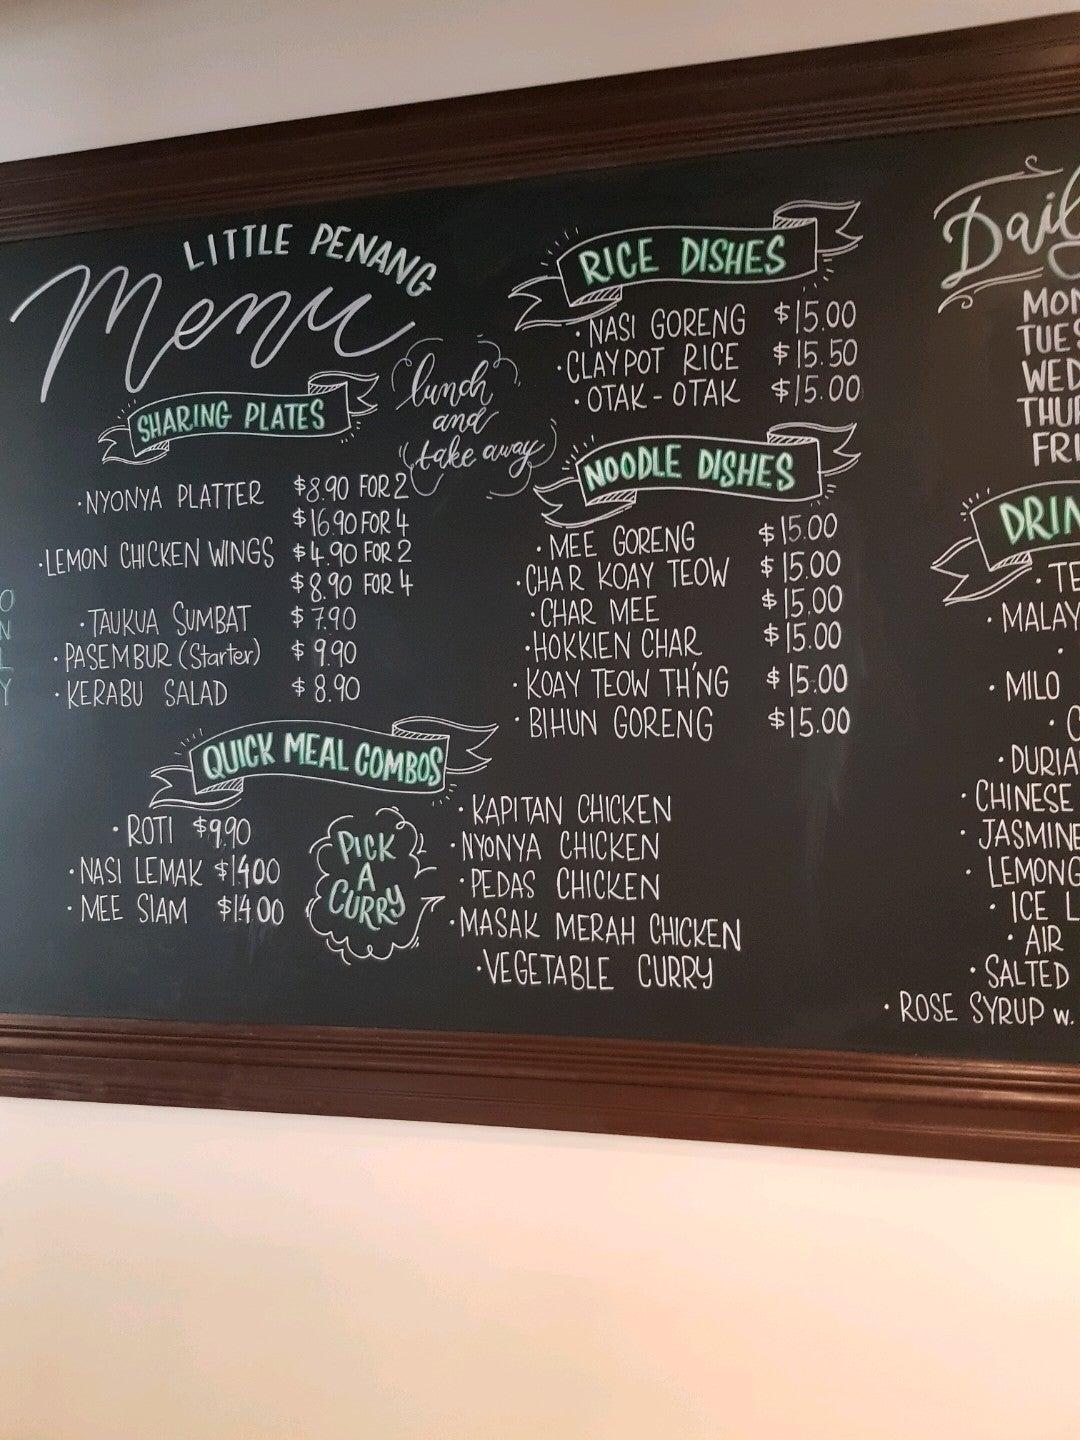 LITTLE PENANG
Menu
lunch
and
take away
SHARING PLATES
· NYONYA PLATTER $8.90 FOR 2
$16.90 FOR 4
· LEMON CHICKEN WINGS $4.90 FOR 2
$8.90 FOR 4
· TAUKUA SUMBAT $7.90
· PASEMBUR (Starter) $9.90
· KERABU SALAD $8.90
QUICK MEAL COMBOS
· ROTI $9.90
· NASI LEMAK $14.00
· MEE SIAM $14.00
PICK
A
CURRY
· KAPITAN CHICKEN
· NYONYA CHICKEN
· PEDAS CHICKEN
· MASAK MERAH CHICKEN
· VEGETABLE CURRY
RICE DISHES
· NASI GORENG $15.00
· CLAYPOT RICE $15.50
· OTAK-OTAK $15.00
NOODLE DISHES
· MEE GORENG $15.00
· CHAR KOAY TEOW $15.00
· CHAR MEE $15.00
· HOKKIEN CHAR $15.00
· KOAY TEOW TH'NG $15.00
· BIHUN GORENG $15.00
MON
TUES
WED
THUR
FRI
· MILO
· CHINESE
· JASMINE
· ICE
· AIR
· SALTED
· ROSE SYRUP w.